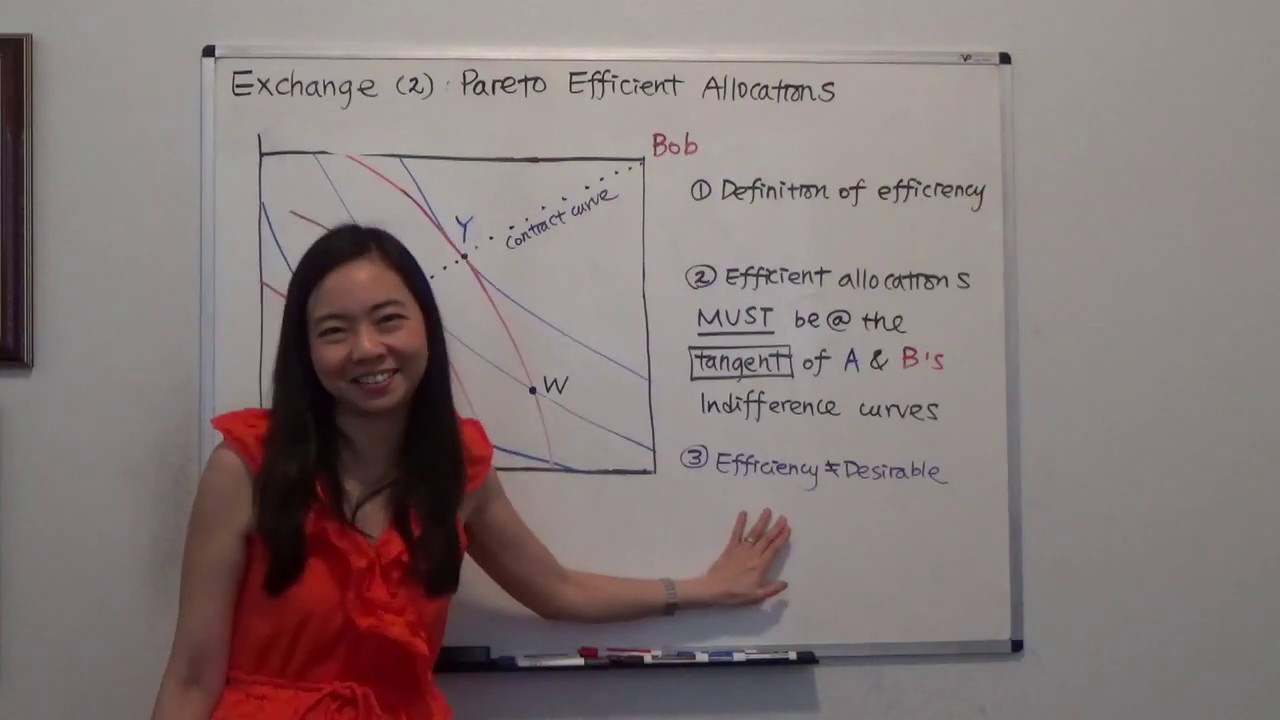 Exchange (2): Pareto Efficient Allocations
Bob
① Definition of efficiency
Y
contract curve
② Efficient allocations
MUST be @ the
tangent of A & B's
Indifference curves
W
③ Efficiency ≠ Desirable